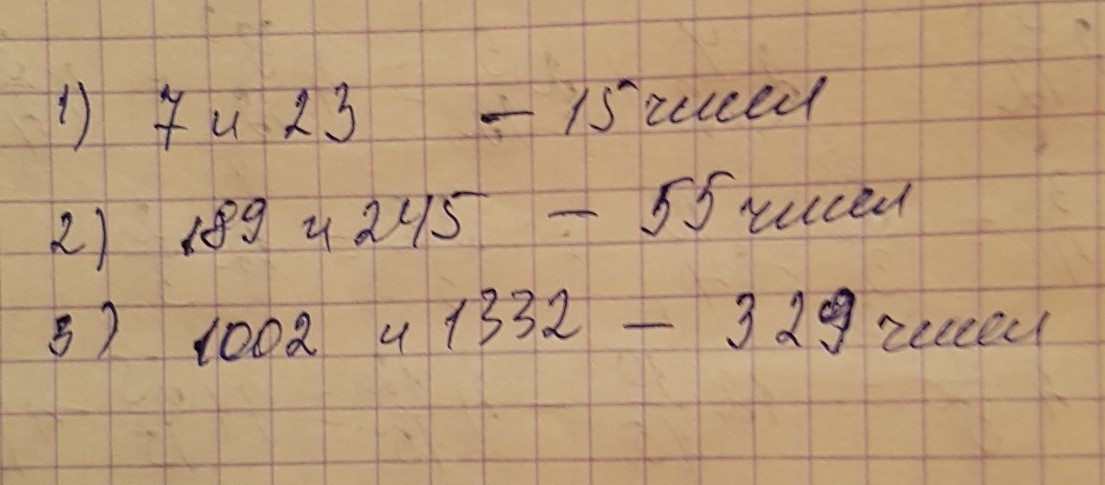 1) 7 и 23 — 15 чисел
2) 189 и 245 — 55 чисел
3) 1002 и 1332 — 329 чисел